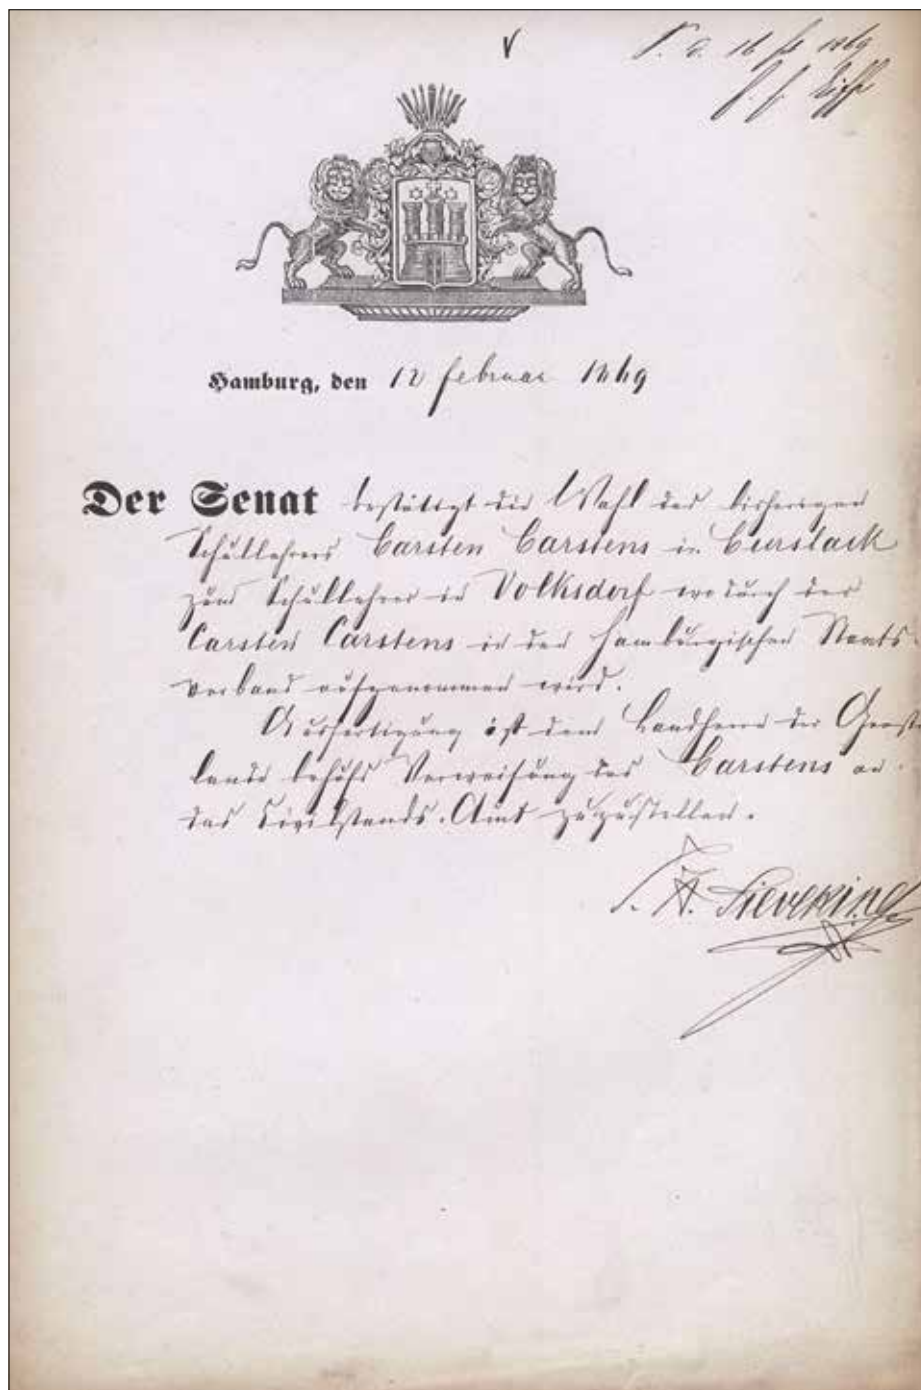 16 1869
Hamburg, den 12 Februar 1869
Der Senat bestätigt die Wahl des bisherigen
Schullehrers Carsten Carstens in Curslack
zum Schullehrer in Volksdorf wodurch der
Carsten Carstens in den Hamburgischen Staats-
verband aufgenommen wird.
Ausfertigung ist dem Landherrn der Geest-
lande behufs Verweisung des Carstens an
das Civilstands-Amt zuzustellen.
Sieveking